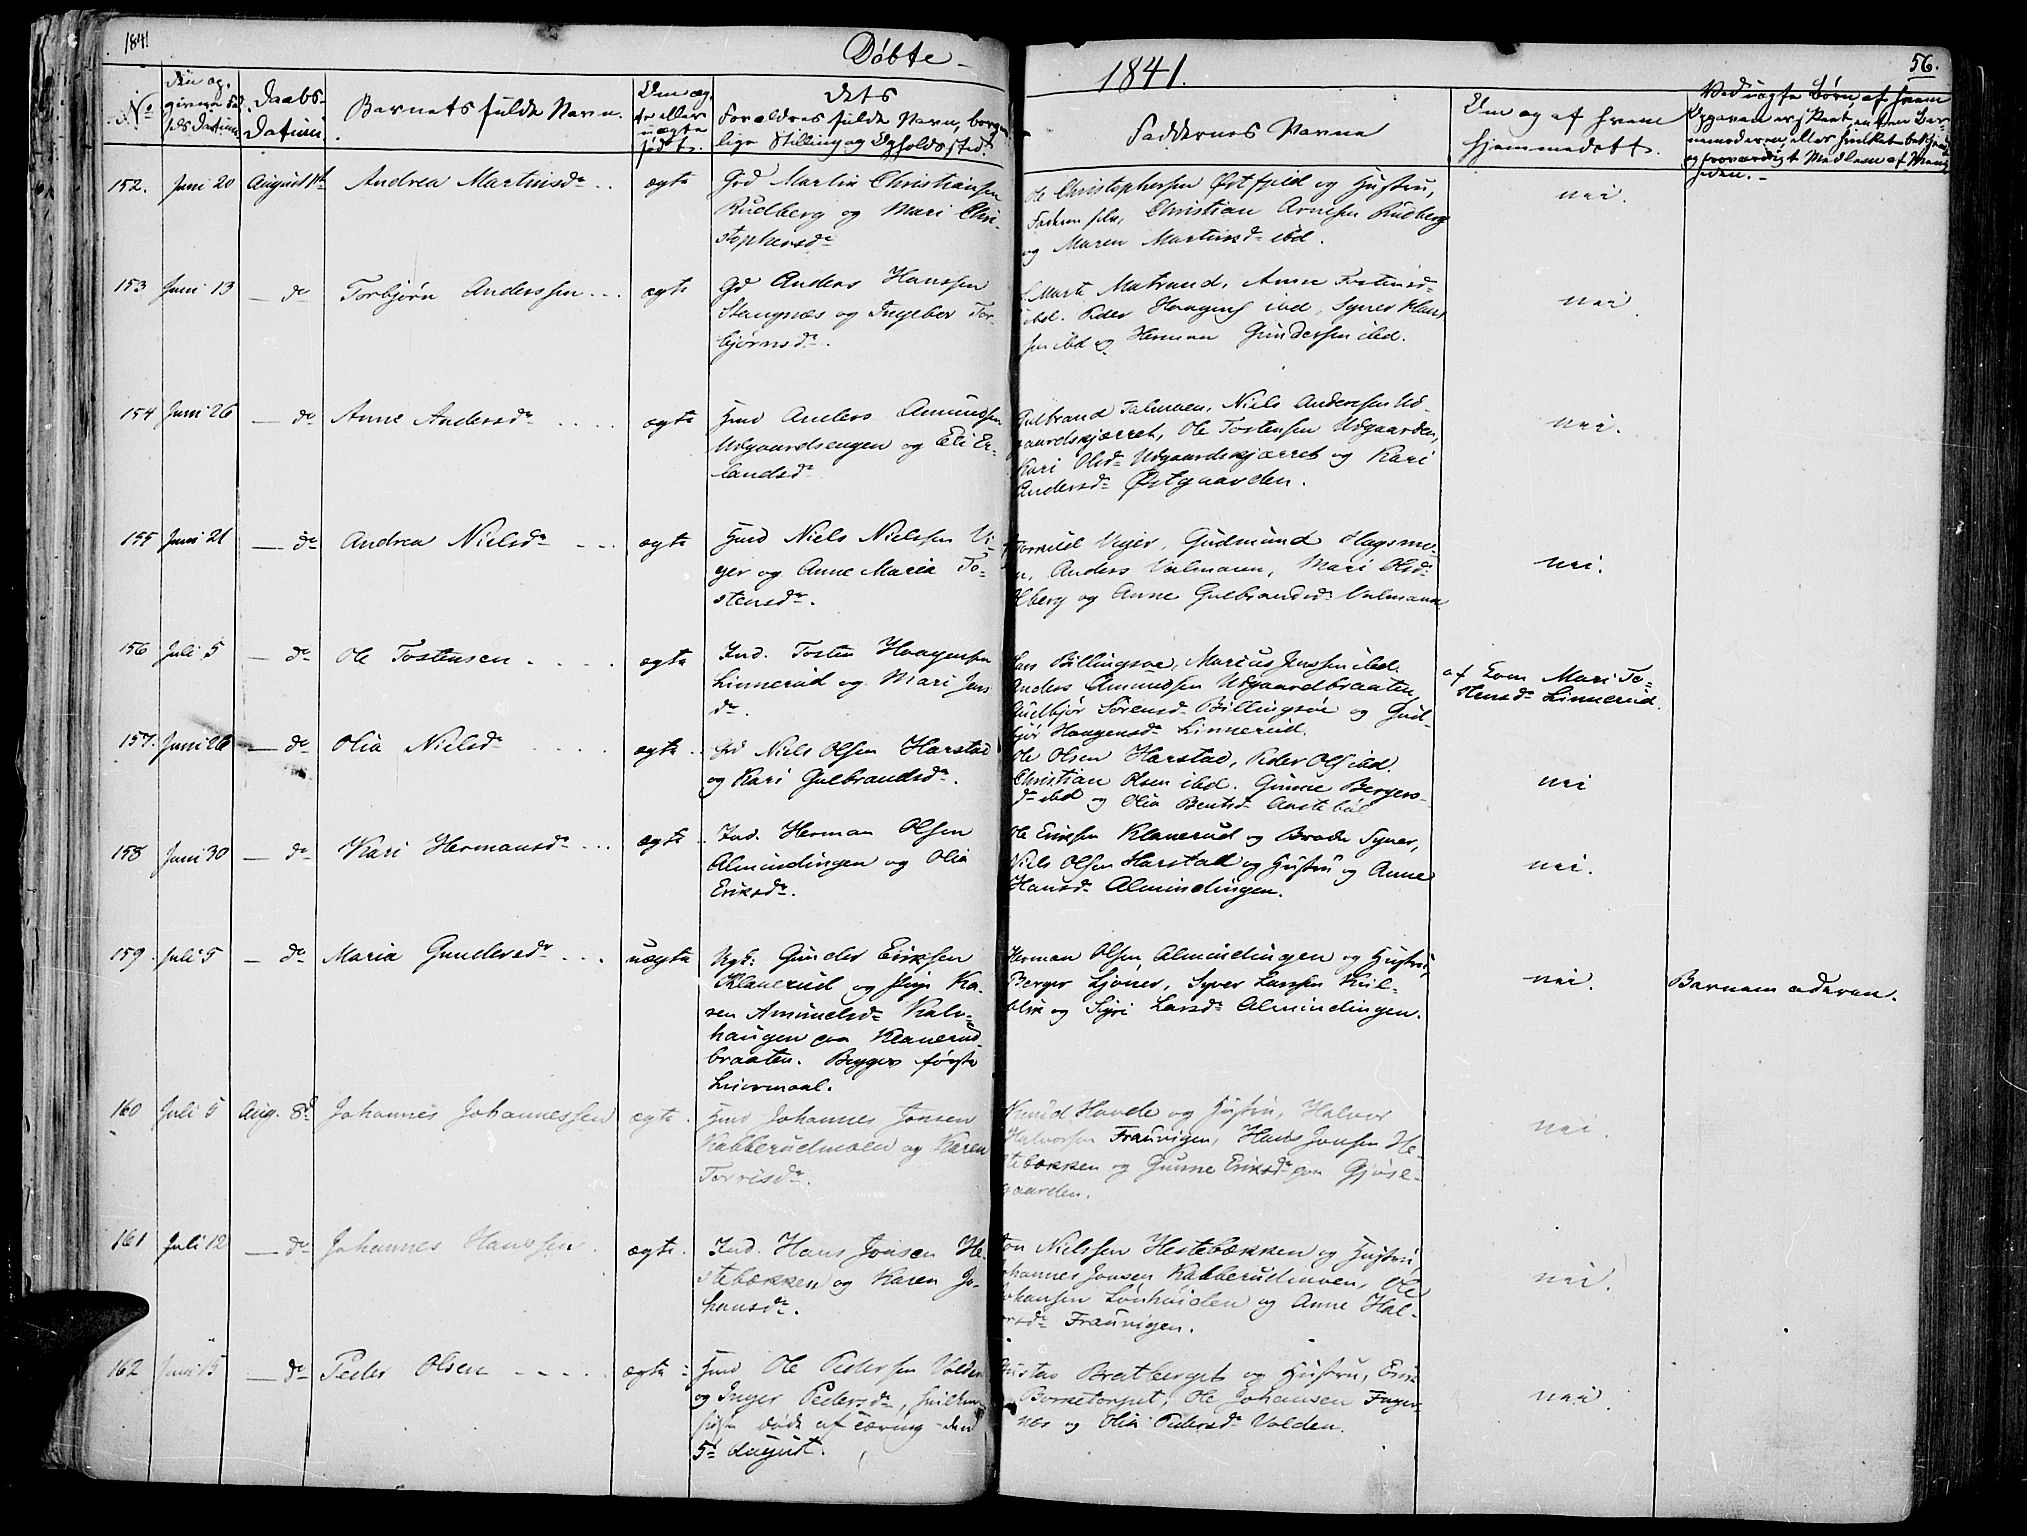 1841
Døbte
1841.
56.
No
Den og givne Fødsels Datum
Daabs-Datum
Barnets fulde Navn.
Om ægte eller uægte født.
dets Forældres fulde Navn, borgerlige Stilling og Opholdssted.
Faddernes Navne
Om og af hvem hjemmedøbt.
Ved uægte Børn, af hvem
152. Juni 20 August 1st Andrea Martinsdr. . . ægte
Grd Martin Christiansen
Rudberg og Mari Chri-
stophersdr
Ole Christophersen Østfjeld og Hustru,
Faderen selv, Christian Arnesen Rudberg
og Maren Martinsdr ibd.
nei.
153 Juni 13 — do Torbjørn Anderssen . . . ægte
Gd Anders Hanssen
Stangnæs og Ingebor Tor-
bjørnsdr.
Marte Matrand, Anne Tostensdr
ibd. Peder Haagens ibd, Syver Hans
sen ibd og Herman Gundersen ibd.
nei.
154 Juni 26 — do Anne Andersdr . . . . ægte
Hmd Anders Amundsen
Udgaardsengen og Eli Er-
landsdr
Gulbrand Talmoen, Niels Anderssen Ud-
gaardskjærret, Ole Tostensen Udgaarden,
Kari Olsdr Udgaardskjærret og Kari
Andersdr Østgaarden.
nei.
155 Juni 21 — do Andrea Nielsdr - - - ægte
Hmd Niels Nielssen Vi-
ger og Anne Maria To-
stensdr.
Viger, Gudmund Hagsmo-
en, Anders Valmann, Mari Olsdr
berg og Anne Gulbrandsdr Valmann
nei.
156 Juli 5 — do Ole Tostensen . . . . ægte
Ind. Tosten Haagensen
Linnerud og Mari Jens
dr.
Lars Billingsøe, Marcus Jenssen ibd.
Anders Amundsen Udgaardbraaten,
Gudbjør Sørensdr Billingsøe og Gud-
bjør Haagensdr Linnerud.
af Mari To-
stensdr Linnerud.
157. Juni 26 — do Olia Nielsdr . . . . ægte .
Gd Niels Olsen Harstad
og Kari Gulbrandsdr.
Ole Olsen Harstad, Peder Ols ibd.
Christian Olsen ibd. Gunne Bergers-
dr ibd og Olia Berntsdr
nei
158 Juni 30 — do Kari Hermansdr . . . ægte .
Ind. Herman Olsen
Almindingen og Olia
Eriksdr.
Ole Eriksen Klanerud og Broder Syver,
Niels Olsen Harstad og Hustru og Anne
Hansdr Almindingen.
nei.
159. Juli 5 — do Maria Gundersdr . . . uægte
Ugk: Gunder Eriksen
Klanerud og Pige Ka-
ren Amundsdr Kalv-
haugen paa Klanerud-
braaten. Begges første
Leiermaal.
Herman Olsen Almindingen og Hustru,
Berger Sjøner, Syver Larsen Kul-
blik og Siri Larsdr Almindingen.
nei.
Barnemoderen.
160 Juli 5 Aug. 8d Johannes Johannessen ægte .
Hmd Johannes Jonsen
Kabberudmoen og Karen
Torrisdr.
Knud Hovde og Hustru, Halvor
Halvorsen Frauvigen, Hans Jonsen He-
stebækken og Gunne Eriksdr paa Gjøse-
gaarden.
nei.
161 Juli 12 — do Johannes Hanssen . ægte.
Ind. Hans Jonsen He-
stebækken og Karen Jo-
hansdr.
Jon Nielssen Hestebækken og Hustru,
Johannes Jonsen Kabberudmoen, Ole
Johansen Lønhøiden og Anne Hal-
vorsdr Frauvigen.
nei.
162 Juni 15 — do Peder Olsen . . . . . ægte
Hmd Ole Pedersen Volden
og Inger Pedersdr, hvilken
sidste døde af Tæring den
5te August.
Gustav Bratberget og Hustru, Erik
Borketorpet, Ole Johansen Fager-
nes og Olia Pedersdr Volden.
nei.